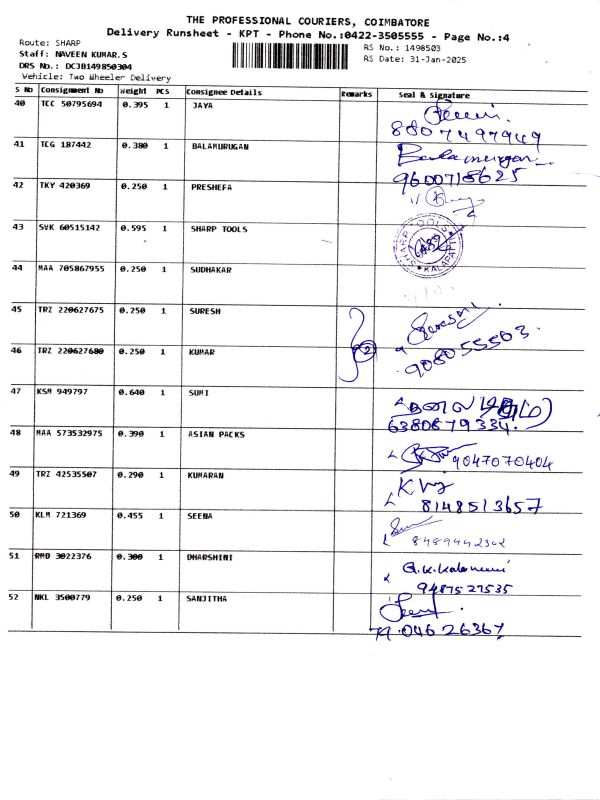 THE PROFESSIONAL COURIERS, COIMBATORE
Delivery Runsheet - KPT - Phone No.:0422-3505555 - Page No.:4
Route: SHARP
Staff: NAVEEN KUMAR.S
DRS No.: DCJB149850304
Vehicle: Two Wheeler Delivery
RS No.: 1498503
RS Date: 31-Jan-2025
S No Consignment No Weight PCS Consignee Details Remarks Seal & Signature
40 TCC 50795694 0.395 1 JAYA
8807497949
41 TCG 187442 0.380 1 BALAMURUGAN Balamurugan
9600718625
42 TKY 420369 0.250 1 PRESHEFA
43 SVK 60515142 0.595 1 SHARP TOOLS SHARP TOOLS KALAPATTI
44 MAA 705867955 0.250 1 SUDHAKAR
45 TRZ 220627675 0.250 1 SURESH
46 TRZ 220627680 0.250 1 KUMAR 2 908055503
47 KSM 949797 0.640 1 SUMI
6380879334.
48 MAA 573532975 0.390 1 ASIAN PACKS 9047070404
49 TRZ 42535507 0.290 1 KUMARAN
8148513657
50 KLM 721369 0.455 1 SEENA
8489442302
51 RMD 3022376 0.300 1 DHARSHINI
9487527535
52 NKL 3500779 0.250 1 SANJITHA